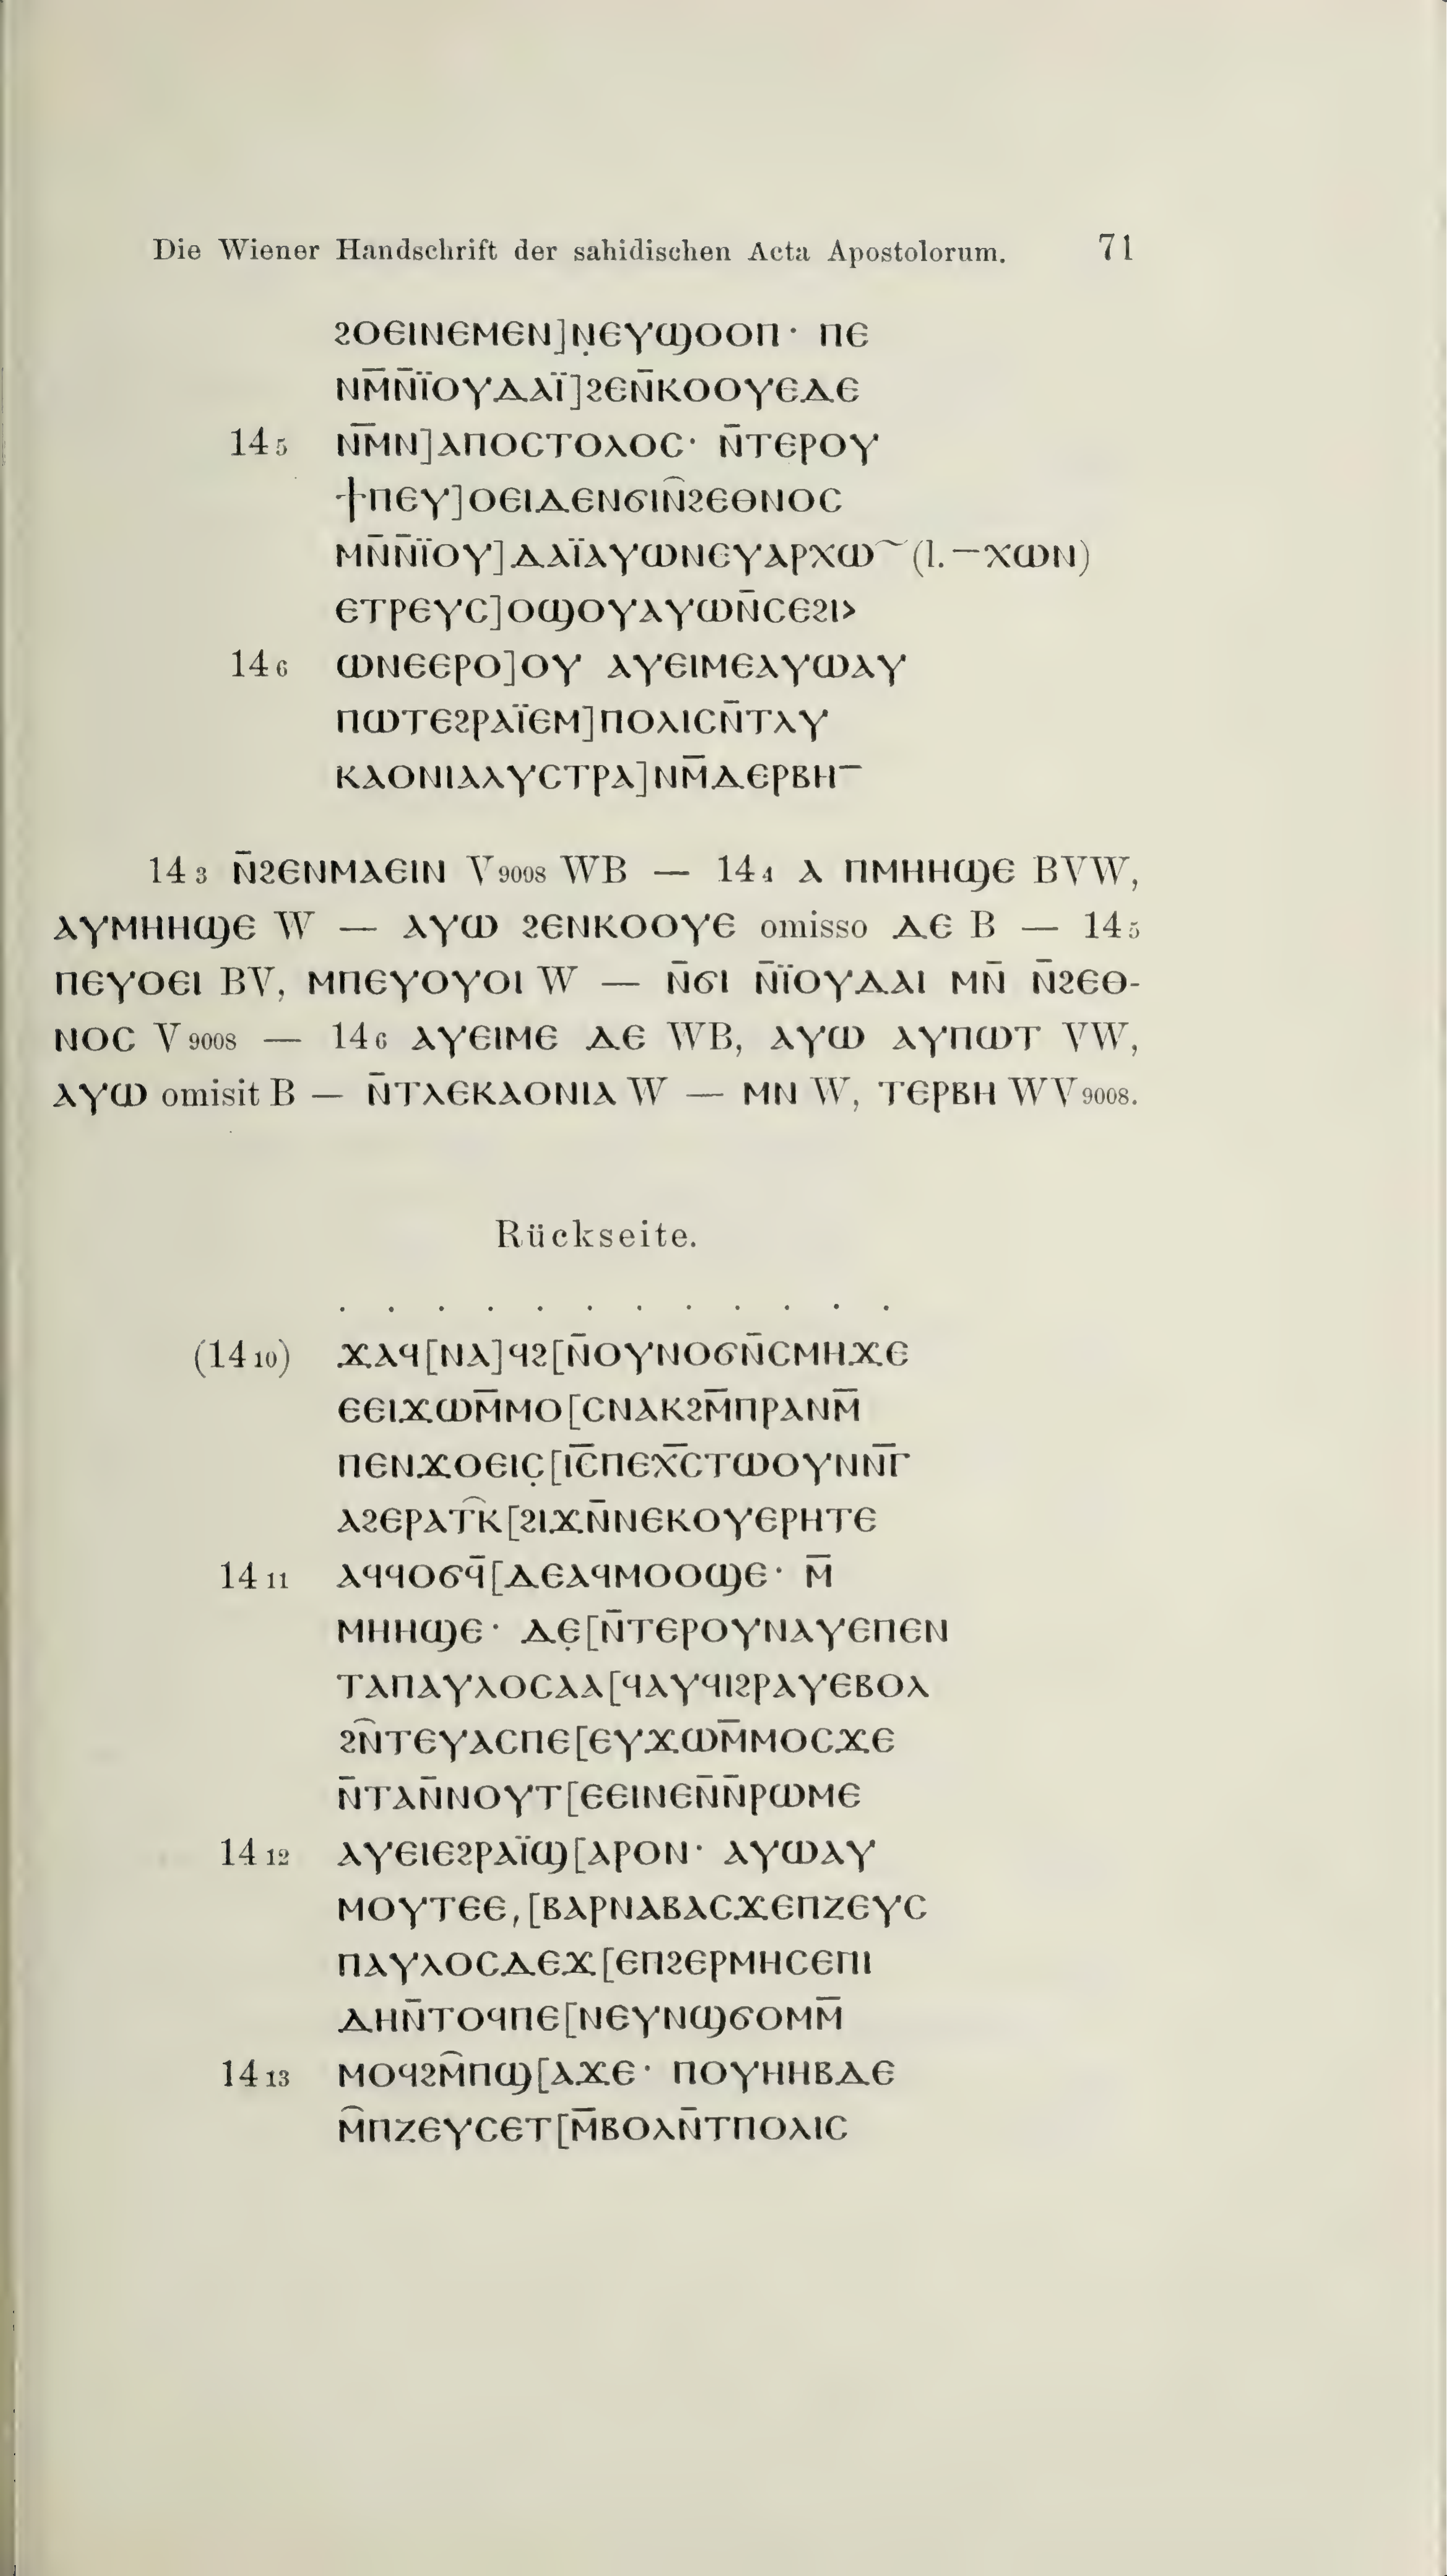 Die Wiener Handschrift der sahidischen Acta Apostolorum. 71
ϩⲟⲉⲓⲛⲉⲙⲉⲛ]ⲛ̣ⲉⲩϣⲟⲟⲡ· ⲡⲉ
ⲛⲙ̄ⲛ̄ⲓ̈ⲟⲩⲇⲁⲓ̈]ϩⲉⲛ̄ⲕⲟⲟⲩⲉⲇⲉ
14 5 ⲛ̄ⲙⲛ]ⲁⲡⲟⲥⲧⲟⲗⲟⲥ· ⲛ̄ⲧⲉⲣⲟⲩ
ϯⲡⲉⲩ]ⲟⲉⲓⲇⲉⲛϭⲓⲛ̂ϩⲉⲑⲛⲟⲥ
ⲙⲛ̄ⲛ̄ⲓ̈ⲟⲩ]ⲇⲁⲓ̈ⲁⲩⲱⲛⲉⲩⲁⲣⲭⲱ~ (l. –ⲭⲱⲛ)
ⲉⲧⲣⲉⲩⲥ]ⲟϣⲟⲩⲁⲩⲱⲛ̄ⲥⲉϩⲓ>
14 6 ⲱⲛⲉⲉⲣⲟ]ⲟⲩ ⲁⲩⲉⲓⲙⲉⲁⲩⲱⲁⲩ
ⲡⲱⲧⲉϩⲣⲁⲓ̈ⲉⲙ]ⲡⲟⲗⲓⲥⲛ̄ⲧⲗⲩ
ⲕⲁⲟⲛⲓⲁⲗⲩⲥⲧⲣⲁ]ⲛⲙ̄ⲇⲉⲣⲃⲏ–
14 3 ⲛ̄ϩⲉⲛⲙⲁⲉⲓⲛ V9008 WB — 14 4 ⲁ ⲡⲙⲏⲏϣⲉ BVW,
ⲁⲩⲙⲏⲏϣⲉ W — ⲁⲩⲱ ϩⲉⲛⲕⲟⲟⲩⲉ omisso ⲇⲉ B — 14 5
ⲡⲉⲩⲟⲉⲓ BV, ⲙⲡⲉⲩⲟⲩⲟⲓ W — ⲛ̄ϭⲓ ⲛ̄ⲓ̈ⲟⲩⲇⲁⲓ ⲙⲛ̄ ⲛ̄ϩⲉⲑ-
ⲛⲟⲥ V9008 — 14 6 ⲁⲩⲉⲓⲙⲉ ⲇⲉ WB, ⲁⲩⲱ ⲁⲩⲡⲱⲧ VW,
ⲁⲩⲱ omisit B — ⲛ̄ⲧⲗⲉⲕⲁⲟⲛⲓⲁ W — ⲙⲛ W, ⲧⲉⲣⲃⲏ WV9008.
Rückseite.
. . . . . . . . . . . .
(14 10) ϫⲁϥ[ⲛⲁ]ϥϩ[ⲛ̄ⲟⲩⲛⲟϭⲛ̄ⲥⲙⲏϫⲉ
ⲉⲉⲓϫⲱⲙ̄ⲙⲟ[ⲥⲛⲁⲕϩⲙ̄ⲡⲣⲁⲛⲙ̄
ⲡⲉⲛϫⲟⲉⲓⲥ̣[ⲓ̄ⲥ̄ⲡⲉⲭ̄ⲥ̄ⲧⲱⲟⲩⲛⲛ̄ⲅ̄
ⲁϩⲉⲣⲁⲧ̂ⲕ[ϩⲓϫⲛ̄ⲛⲉⲕⲟⲩⲉⲣⲏⲧⲉ
14 11 ⲁϥϥⲟϭϥ̄[ⲇⲉⲁϥⲙⲟⲟϣⲉ· ⲙ̄
ⲙⲏⲏϣⲉ· ⲇⲉ̣[ⲛ̄ⲧⲉⲣⲟⲩⲛⲁⲩⲉⲡⲉⲛ
ⲧⲁⲡⲁⲩⲗⲟⲥⲁⲁ[ϥⲁⲩϥⲓϩⲣⲁⲩⲉⲃⲟⲗ
ϩⲛ̂ⲧⲉⲩⲁⲥⲡⲉ[ⲉⲩϫⲱⲙ̄ⲙⲟⲥϫⲉ
ⲛ̄ⲧⲁⲛ̄ⲛⲟⲩⲧ[ⲉⲉⲓⲛⲉⲛ̄ⲛ̄ⲣⲱⲙⲉ
14 12 ⲁⲩⲉⲓⲉϩⲣⲁⲓ̈ϣ[ⲁⲣⲟⲛ· ⲁⲩⲱⲁⲩ
ⲙⲟⲩⲧⲉⲉ,[ⲃⲁⲣⲛⲁⲃⲁⲥϫⲉⲡⲍⲉⲩⲥ
ⲡⲁⲩⲗⲟⲥⲇⲉϫ[ⲉⲡϩⲉⲣⲙⲏⲥⲉⲡⲓ
ⲇⲏⲛ̄ⲧⲟϥⲡⲉ[ⲛⲉⲩⲛϣϭⲟⲙⲙ̄
14 13 ⲙⲟϥϩⲙ̂ⲡϣ[ⲁϫⲉ· ⲡⲟⲩⲏⲏⲃⲇⲉ
ⲙ̂ⲡⲍⲉⲩⲥⲉⲧ[ⲙ̄ⲃⲟⲗⲛ̄ⲧⲡⲟⲗⲓⲥ